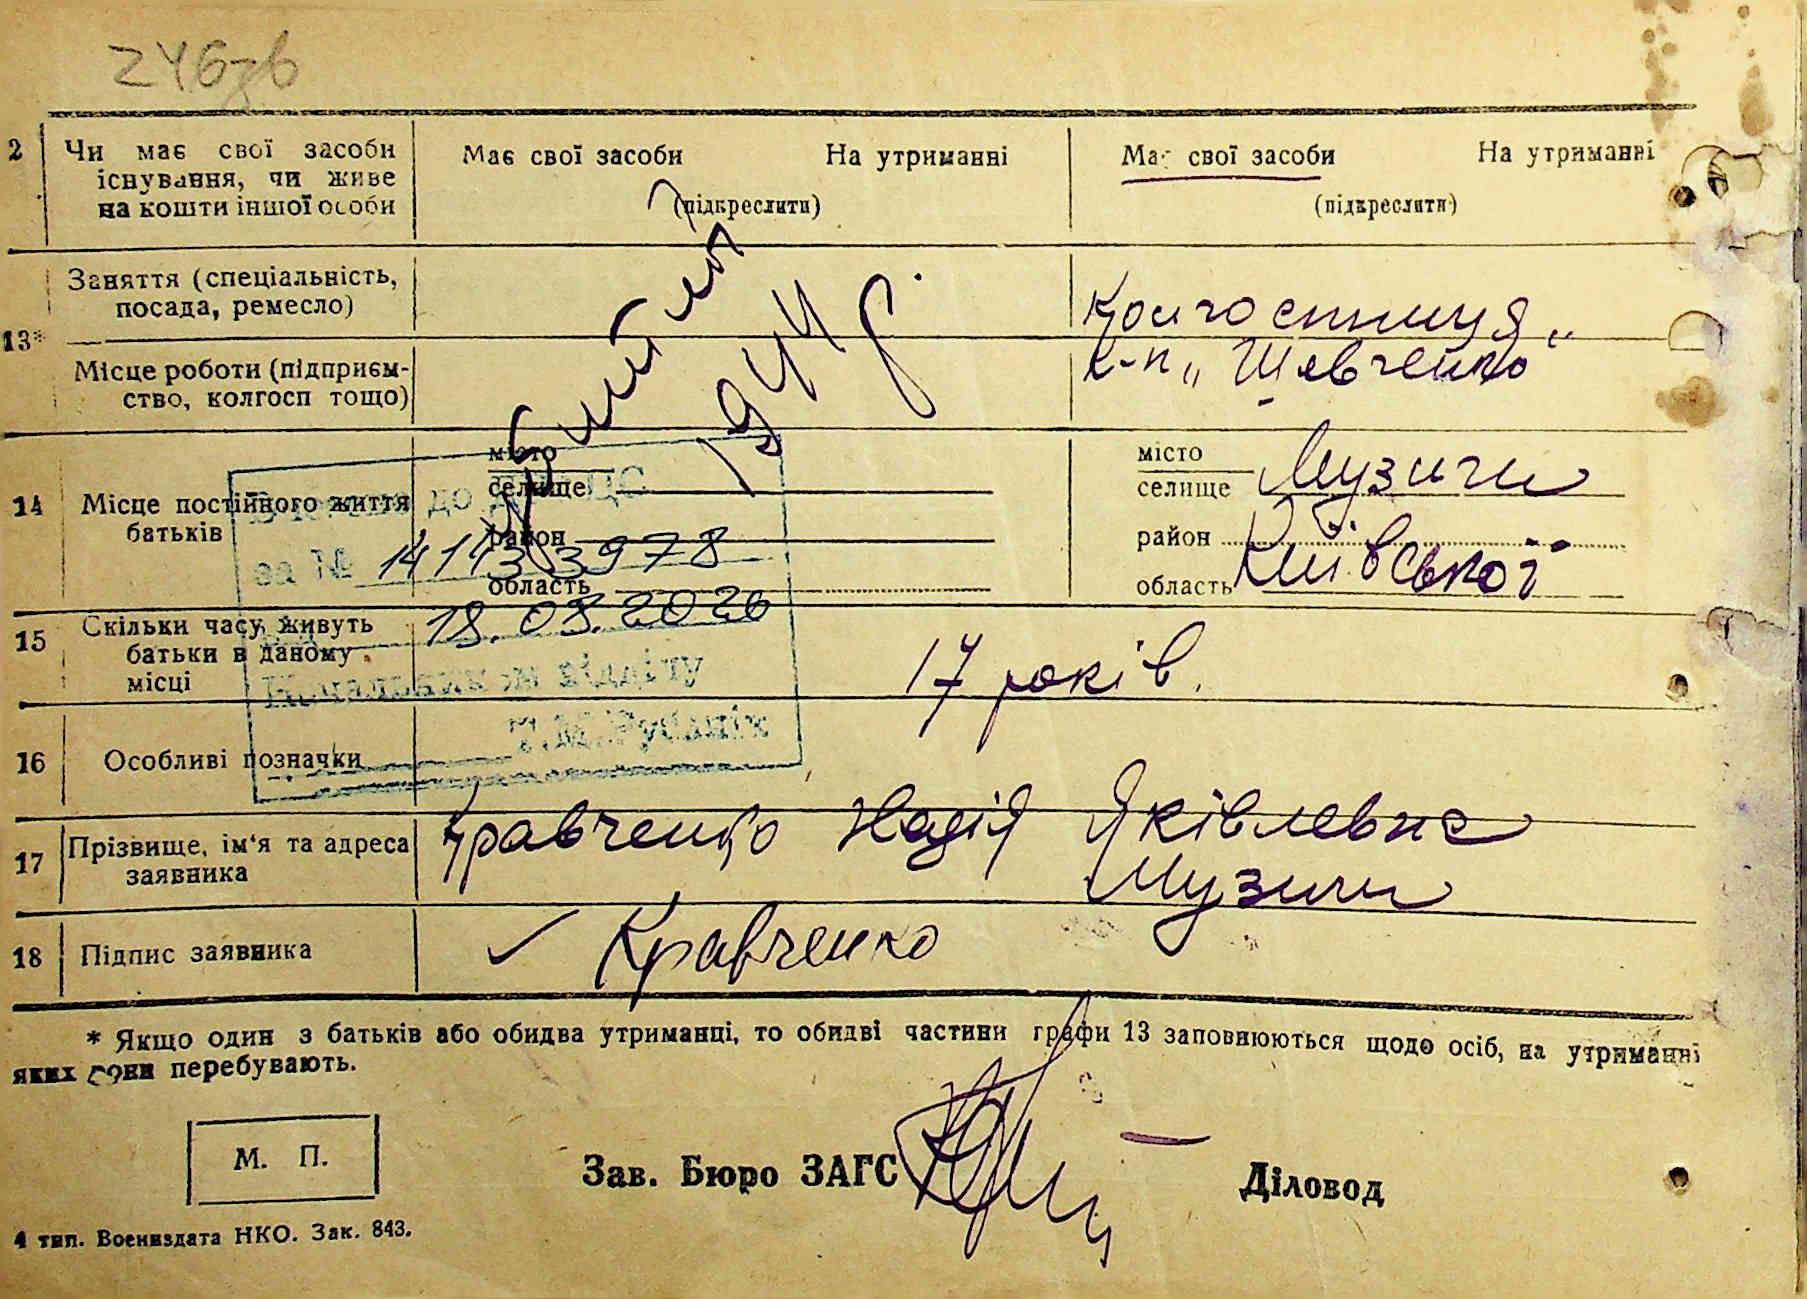 246зв
2 Чи має свої засоби існування, чи живе на кошти іншої особи
Має свої засоби На утриманні
(підкреслити)
Має свої засоби На утриманні
(підкреслити)
убитий
1944 р.
13* Заняття (спеціальність, посада, ремесло)
Колгоспниця
Місце роботи (підприєм-
ство, колгосп тощо)
к-п „Шевченко"
14 Місце постійного життя
батьків
місто
селище
район
область
місто
селище Музичи
район
область Київської
до ДРАЦС
за № 141133978
18.03.2026
15 Скільки часу живуть
батьки в даному
місці
17 років.
16 Особливі позначки
17 Прізвище, ім'я та адреса
заявника
Кравченко Надія Яківлевна
Музичи
18 Підпис заявника
Кравченко
* Якщо один з батьків або обидва утриманці, то обидві частини графи 13 заповнюються щодо осіб, на утриманні
яких вони перебувають.
М. П.
Зав. Бюро ЗАГС
Діловод
4 тип. Воениздата НКО. Зак. 843.